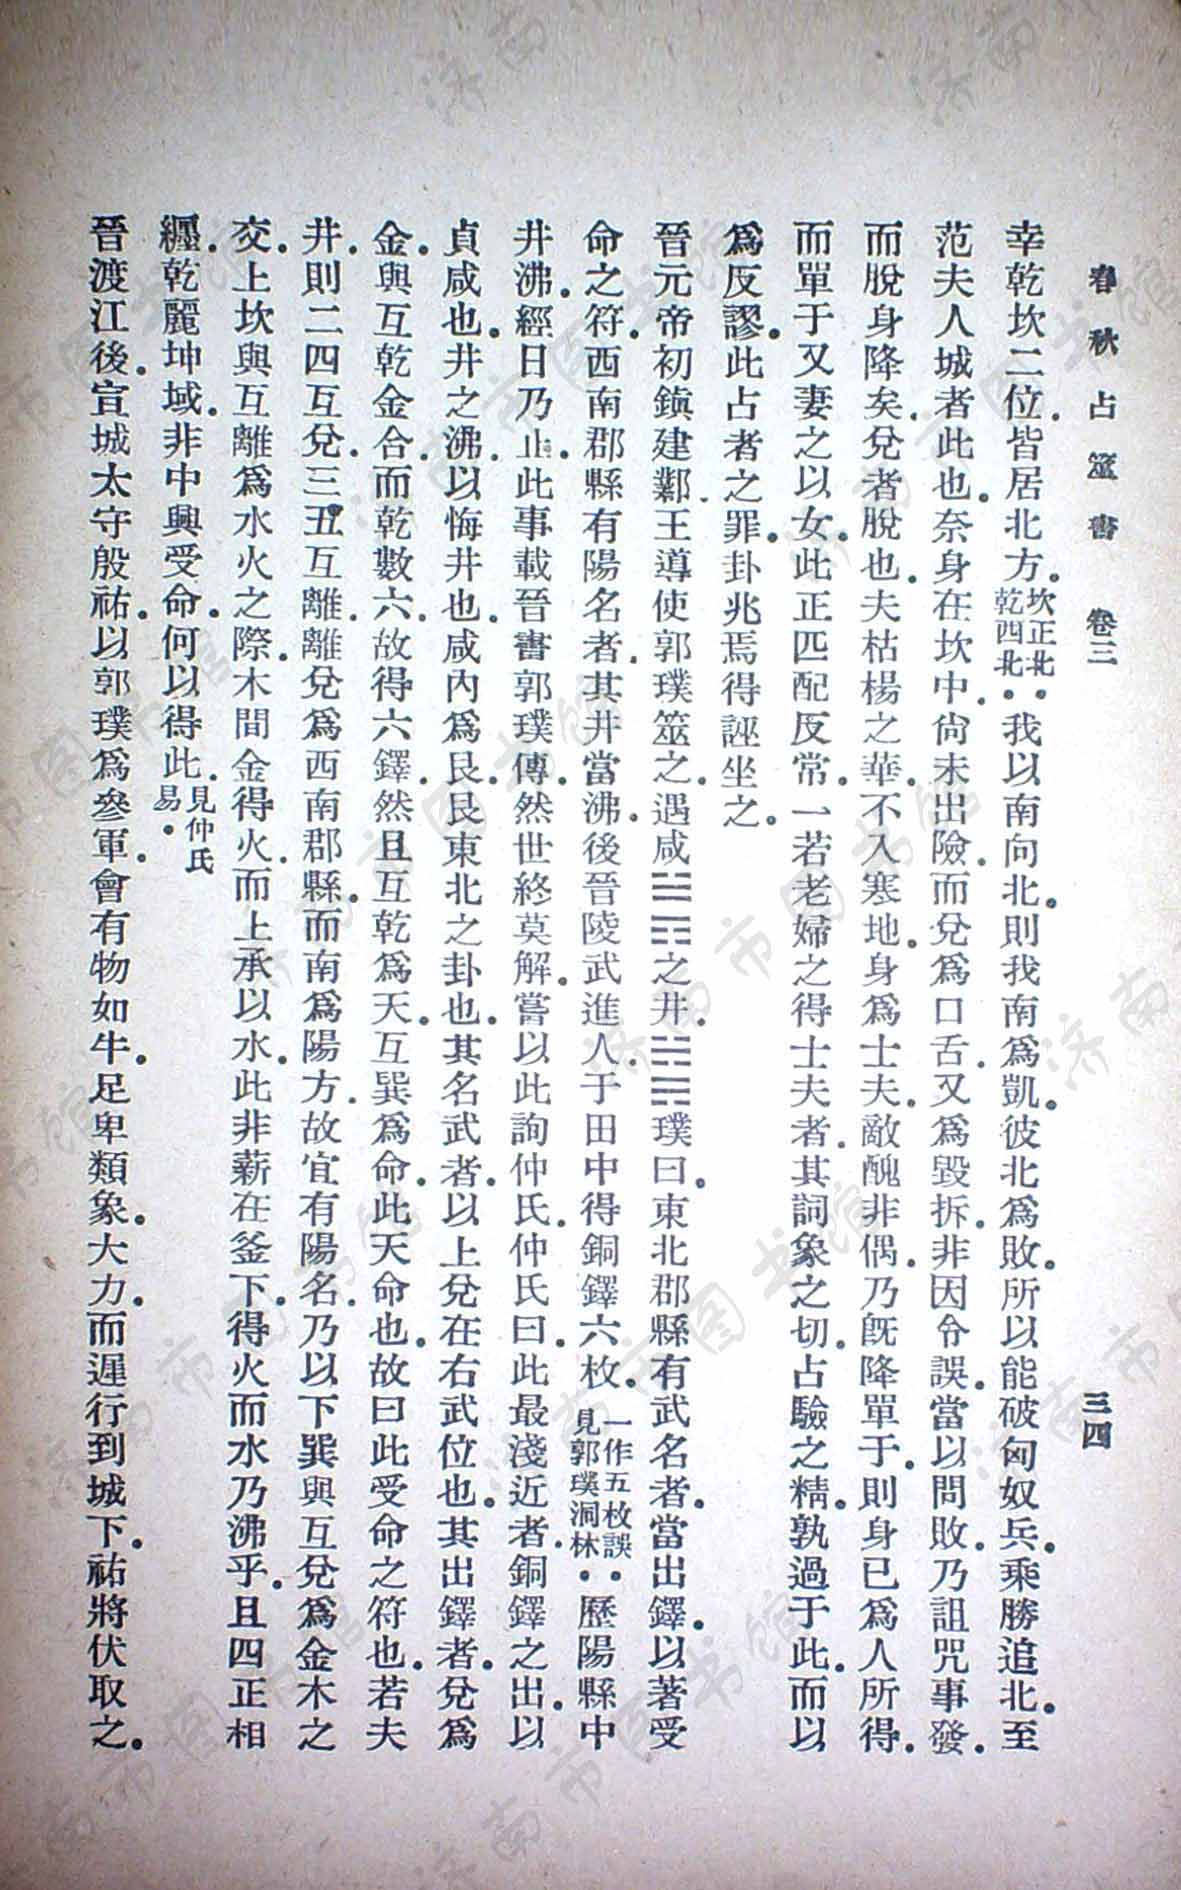 春秋占筮書 卷三 三四
幸乾坎二位。皆居北方。坎正北。乾西北。我以南向北。則我南爲凱。彼北爲敗。所以能破匈奴兵。乘勝追北。至
范夫人城者此也。奈身在坎中。尙未出險。而兌爲口舌。又爲毀拆。非因令誤。當以問敗。乃詛咒事發。
而脫身降矣。兌者脫也。夫枯楊之華。不入寒地。身爲士夫。敵醜非偶。乃旣降單于。則身已爲人所得。
而單于又妻之以女。此正匹配反常。一若老婦之得士夫者。其詞象之切。占驗之精。孰過于此。而以
爲反謬。此占者之罪。卦兆焉得誣坐之。
晉元帝初鎭建鄴。王導使郭璞筮之。遇咸䷞之井。䷯璞曰。東北郡縣有武名者。當出鐸。以著受
命之符。西南郡縣有陽名者。其井當沸。後晉陵武進人。于田中得銅鐸六枚。一作五枚誤。見郭璞洞林。歷陽縣中
井沸。經日乃止。此事載晉書郭璞傳。然世終莫解。嘗以此詢仲氏。仲氏曰。此最淺近者。銅鐸之出。以
貞咸也。井之沸。以悔井也。咸內爲艮。艮東北之卦也。其名武者。以上兌在右。武位也。其出鐸者。兌爲
金。與互乾金合。而乾數六。故得六鐸。然且互乾爲天。互巽爲命。此天命也。故曰此受命之符也。若夫
井。則二四互兌。三五互離。離兌爲西南郡縣。而南爲陽方。故宜有陽名。乃以下巽與互兌爲金木之
交。上坎與互離爲水火之際。木間金得火。而上承以水。此非薪在釜下。得火而水乃沸乎。且四正相
纏。乾麗坤域。非中興受命。何以得此。見仲氏易。
晉渡江後。宣城太守殷祐。以郭璞爲參軍。會有物如牛。足卑類象。大力。而遲行到城下。祐將伏取之。